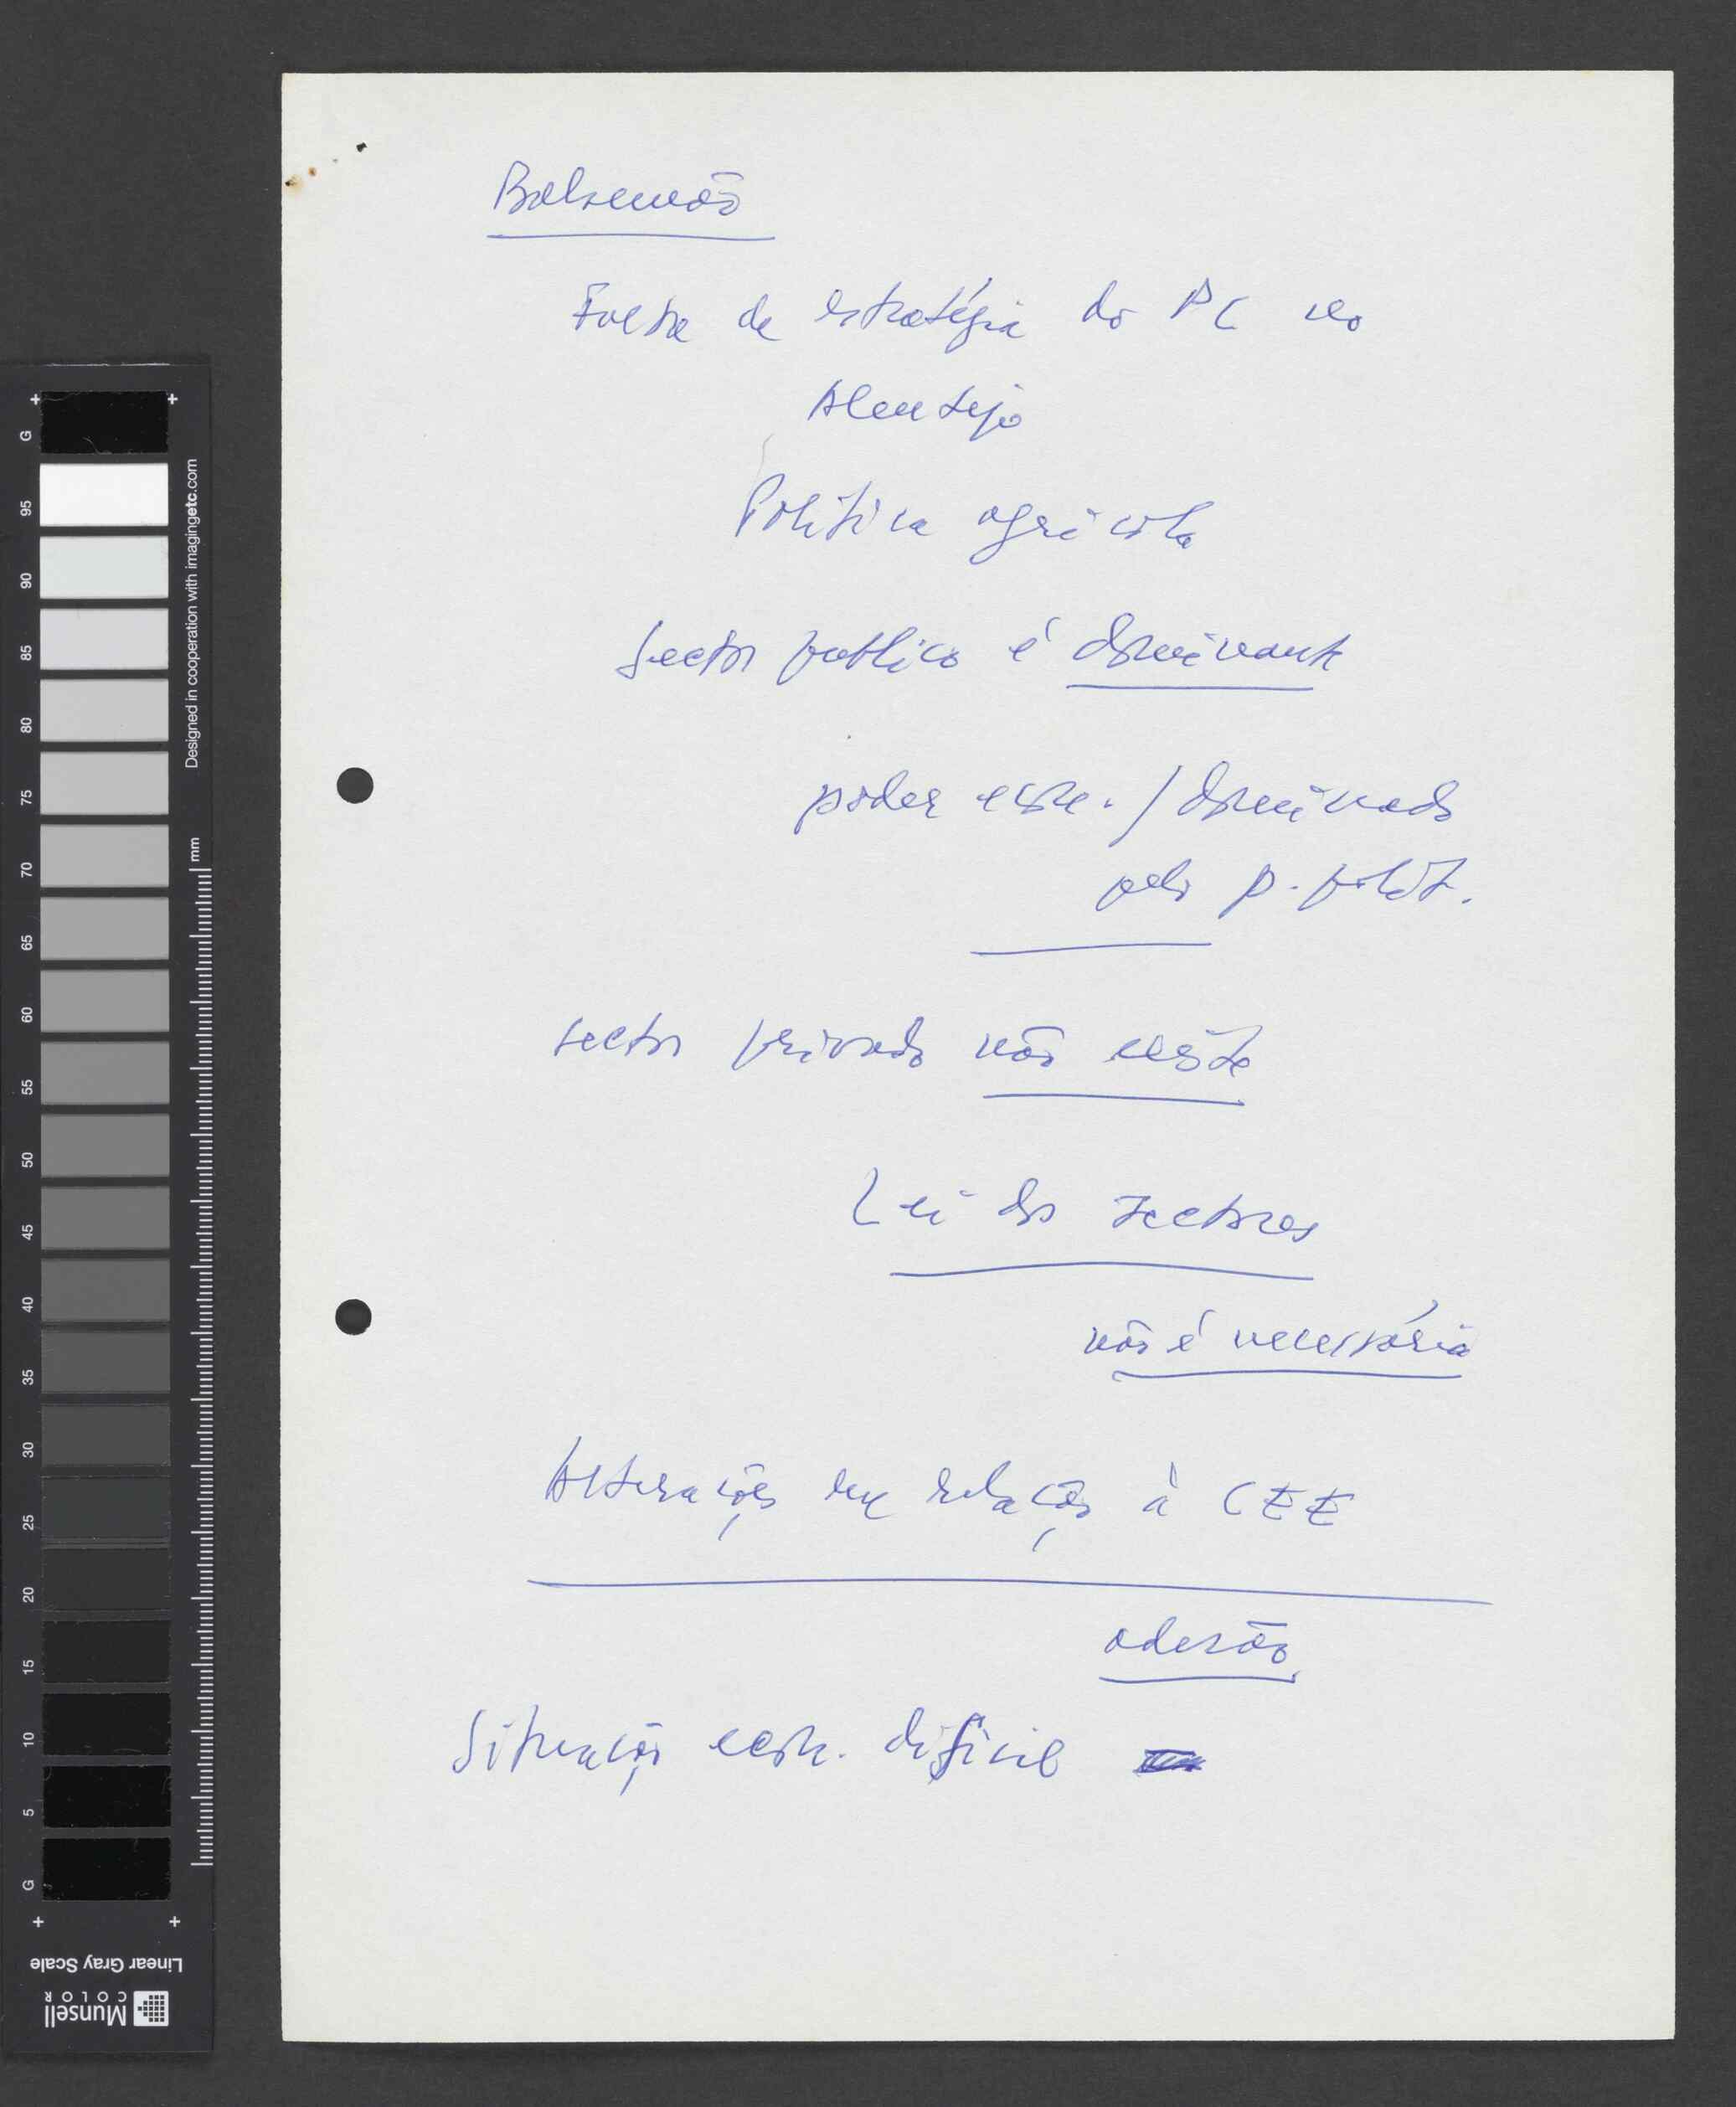 Balsemão
Falta de estratégia do PC no
Alentejo
Política agrícola
Sector publico é dominante
poder econ. / dominado
pelo p. polít.
sector privado não existe
Lei dos sectores
não é necessária
Alterações em relação à CEE
adesão
Situação econ. difícil
G
95
90
85
80
75
70
65
60
55
50
45
40
35
30
25
20
15
10
5
G
Designed in cooperation with imagingetc.com
mm
Linear Gray Scale
Munsell
COLOR